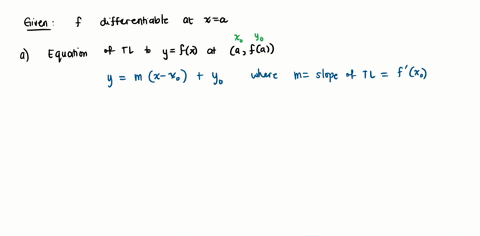 Given: f differentiable at x=a
x₀ y₀
a) Equation of TL to y=f(x) at (a, f(a))
y = m (x-x₀) + y₀ where m= slope of TL = f'(x₀)